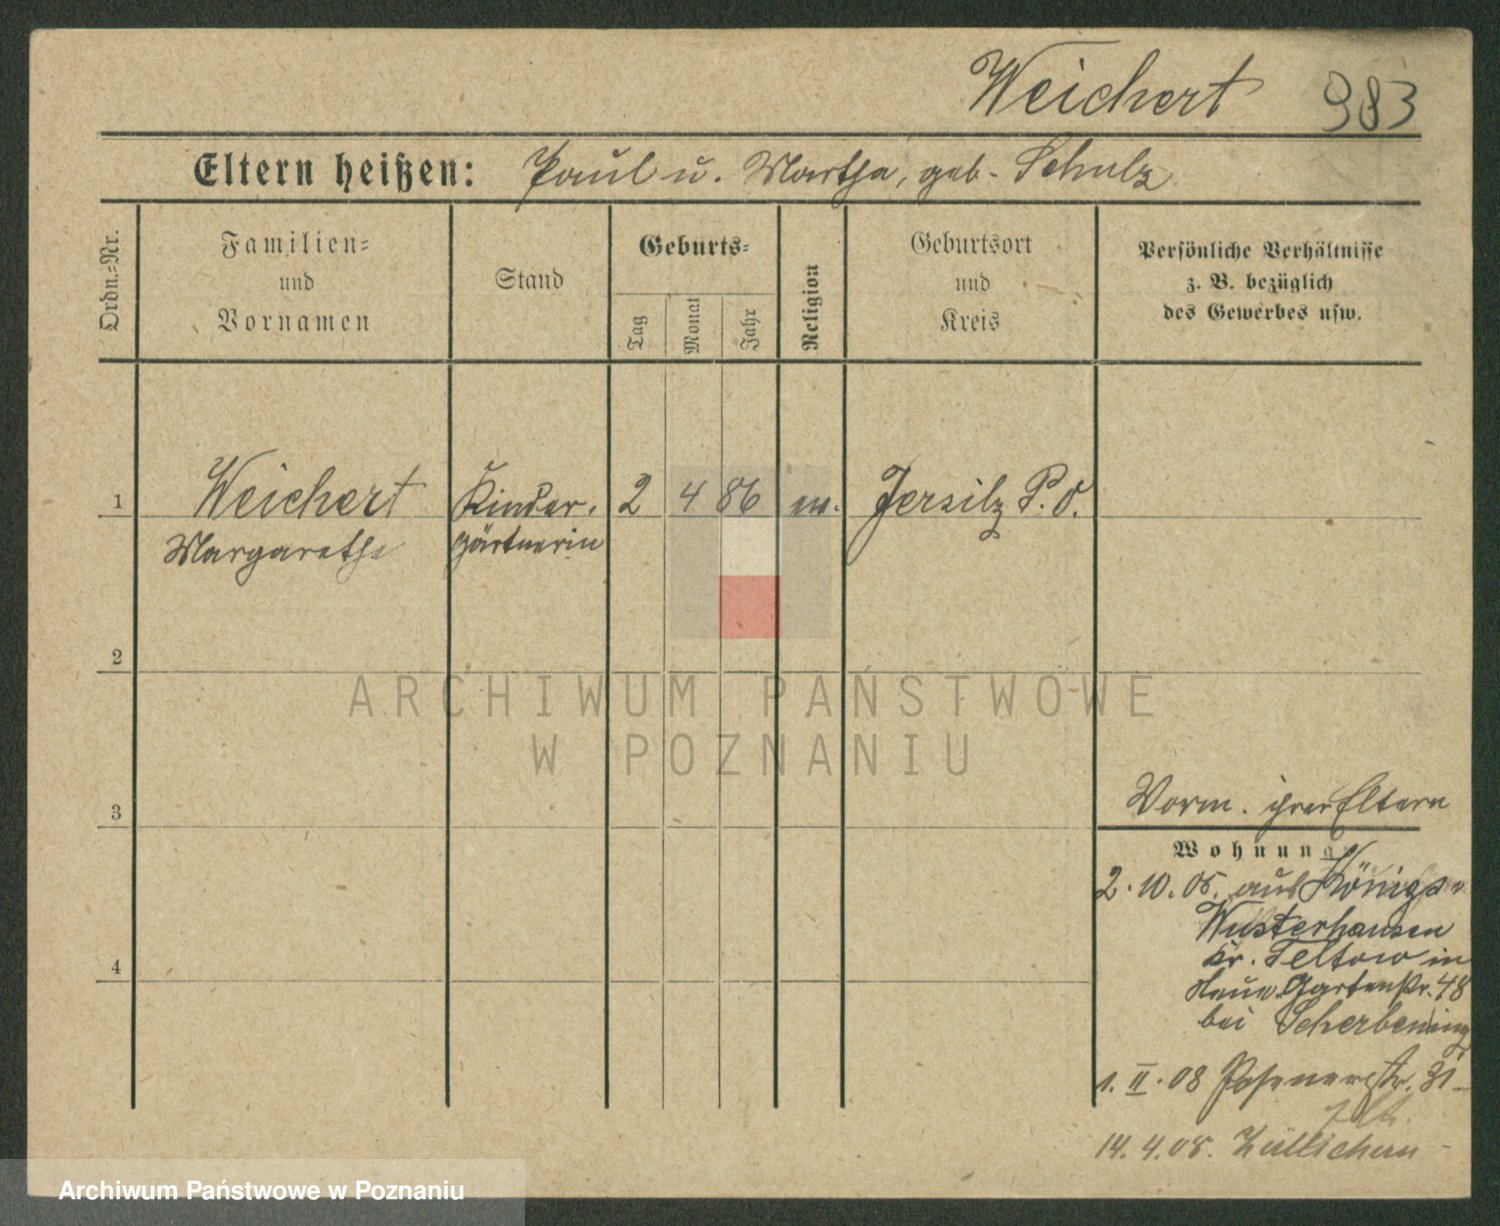 Weichert 983
Eltern heißen: Paul u. Martha, geb. Schulz
Ordn.=Nr.
Familien=
und
Vornamen
Stand
Geburts=
Tag
Monat
Jahr
Religion
Geburtsort
und
Kreis
Persönliche Verhältnisse
z. B. bezüglich
des Gewerbes usw.
1 Weichert Kinder- 2 4 86 ev. Jersitz P. O.
Margarethe gärtnerin
2
3
4
ARCHIWUM PAŃSTWOWE
W POZNANIU
Vorm. ihrer Eltern
Wohnung
2.10.05. aus Königs-
Wusterhausen
Kr. Teltow in
Neue Gartenstr. 48
bei
1. II. 08 Posenerstr. 31
14.4.08. Züllichau
Archiwum Państwowe w Poznaniu